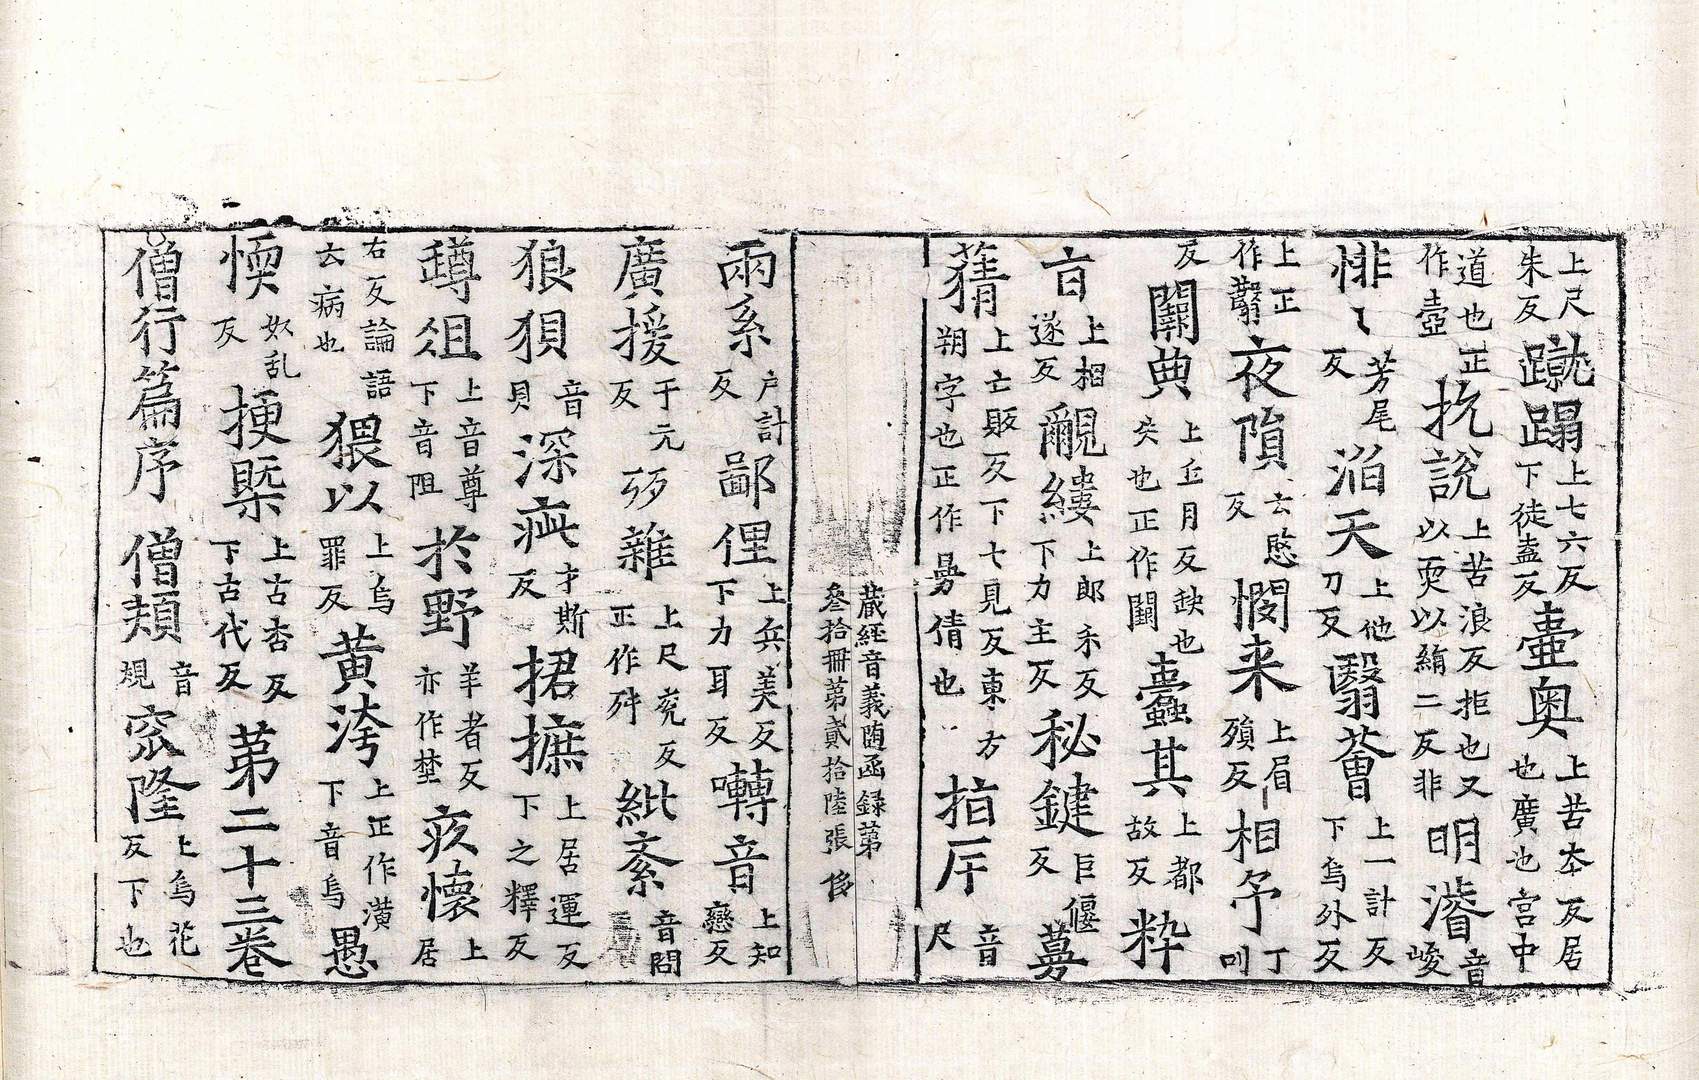 上尺朱反蹴蹋上七六反下徒盍反壷奥上苦夲反居也廣也宮中
道也正作壼抗說上苦浪反拒也又以耎以絹二反非明濬音峻
悱〻芳尾反滔天上他刀反翳薈上一計反下烏外反
上正作鬅夜隕云愍反憫来上眉殞反相予丁叫
反闕典上丘月反缺也失也正作闕蠹其上都故反粹
㐮上相遂反覼縷上郎禾反下力主反秘鍵巨偃反蒡
蒨上亡敗反下七見反東方朔字也正作曼倩也指斥音尺
藏經音義随函録第叄拾冊第貳拾陸張 侈
兩系户計反鄙俚上兵美反下力耳反囀音上知戀反
廣援于元反舛雜上尺兖反正作舛紕紊音問
狼狽音貝深疵才斯反捃摭上居運反下之釋反
罇俎上音尊下音阻於野羊者反亦作埜疚懷上居
右反論語云病也猥以上烏罪反黄洿上正作潢下音烏愚
愞奴乱反挭槩上古杏反下古代反第二十三卷
僧行篇序 僧頍音規窊隆上烏花反下也